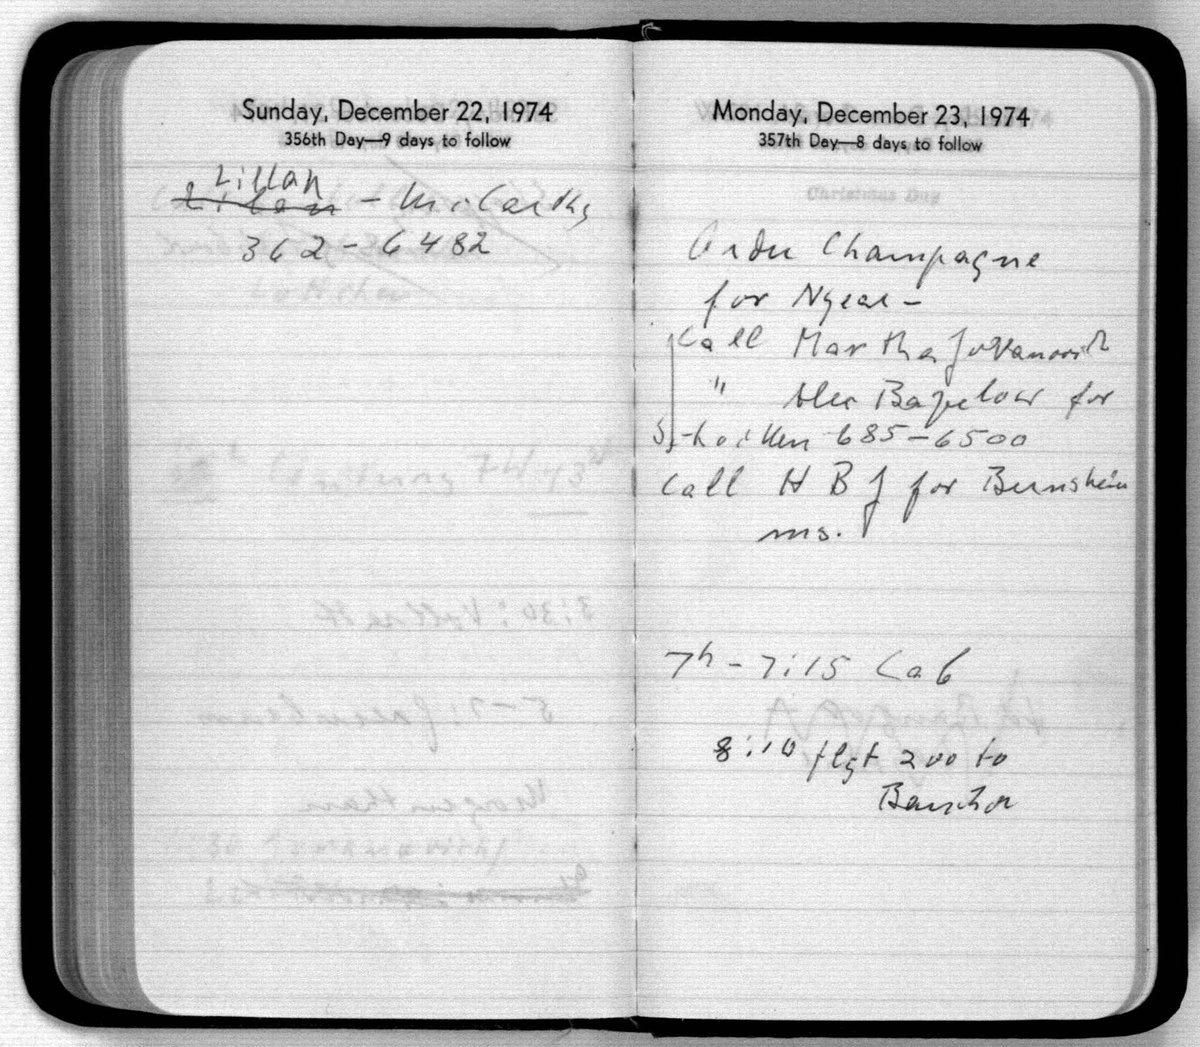 Sunday, December 22, 1974
356th Day—9 days to follow
Lillan
Lillan - McCarthy
362-6482
Monday, December 23, 1974
357th Day—8 days to follow
Christmas Day
Order Champagne
for Nyear-
Call Martha Jovanovich
" Alec Bazelow for
Shocken 685-6500
Call HBJ for Bernstein
ms.
7h - 7:15 Cab
8:10 flgt 200 to